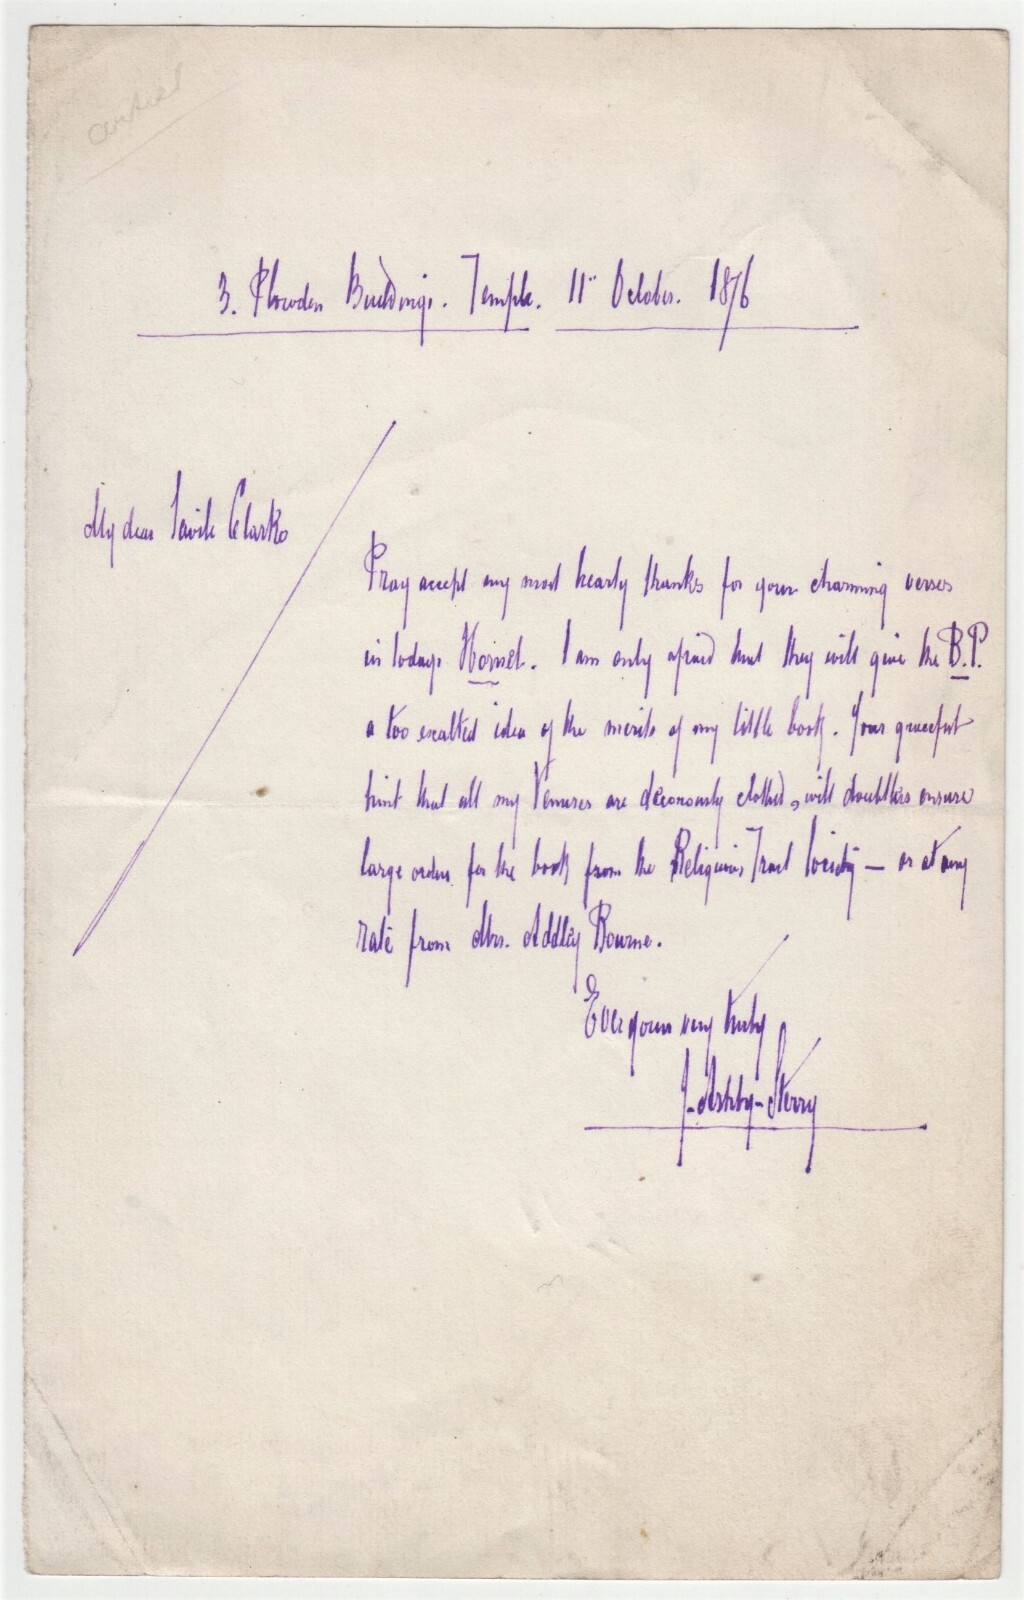 3. Plowden Buildings. Temple. 11" October. 1876
My dear Savile Clarke
Pray accept my most hearty thanks for your charming verses
in todays Hornet. I am only afraid that they will give the B.P.
a too exalted idea of the merits of my little book. Your graceful
hint that all my Venuses are decorously clothed, will doubtless ensure
large orders for the book from the Religious Tract Society — or at any
rate from Mrs. Addley Bourne.
Ever yours very truly
J-Ashby-Sterry